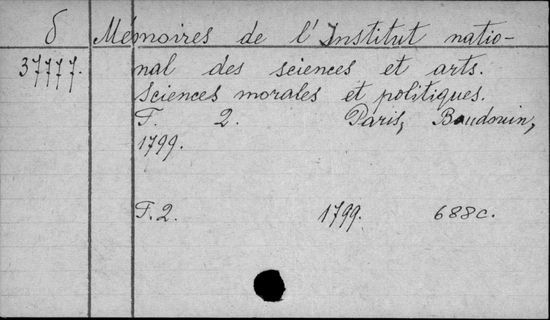 б Mémoires de l'Institut natio-
37777. nal des sciences et arts.
Sciences morales et politiques.
T. 2. Paris, Baudouin,
1799.
T. 2. 1799. 688 c.